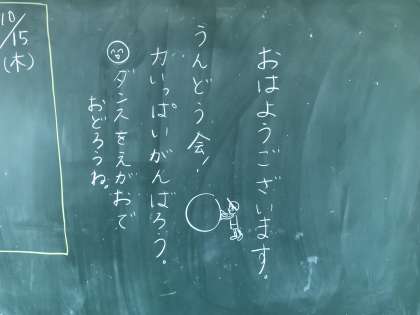 おはようございます。
うんどう会！
力いっぱいがんばろう。
ダンスをえがおで
おどろうね。
10/15
(木)